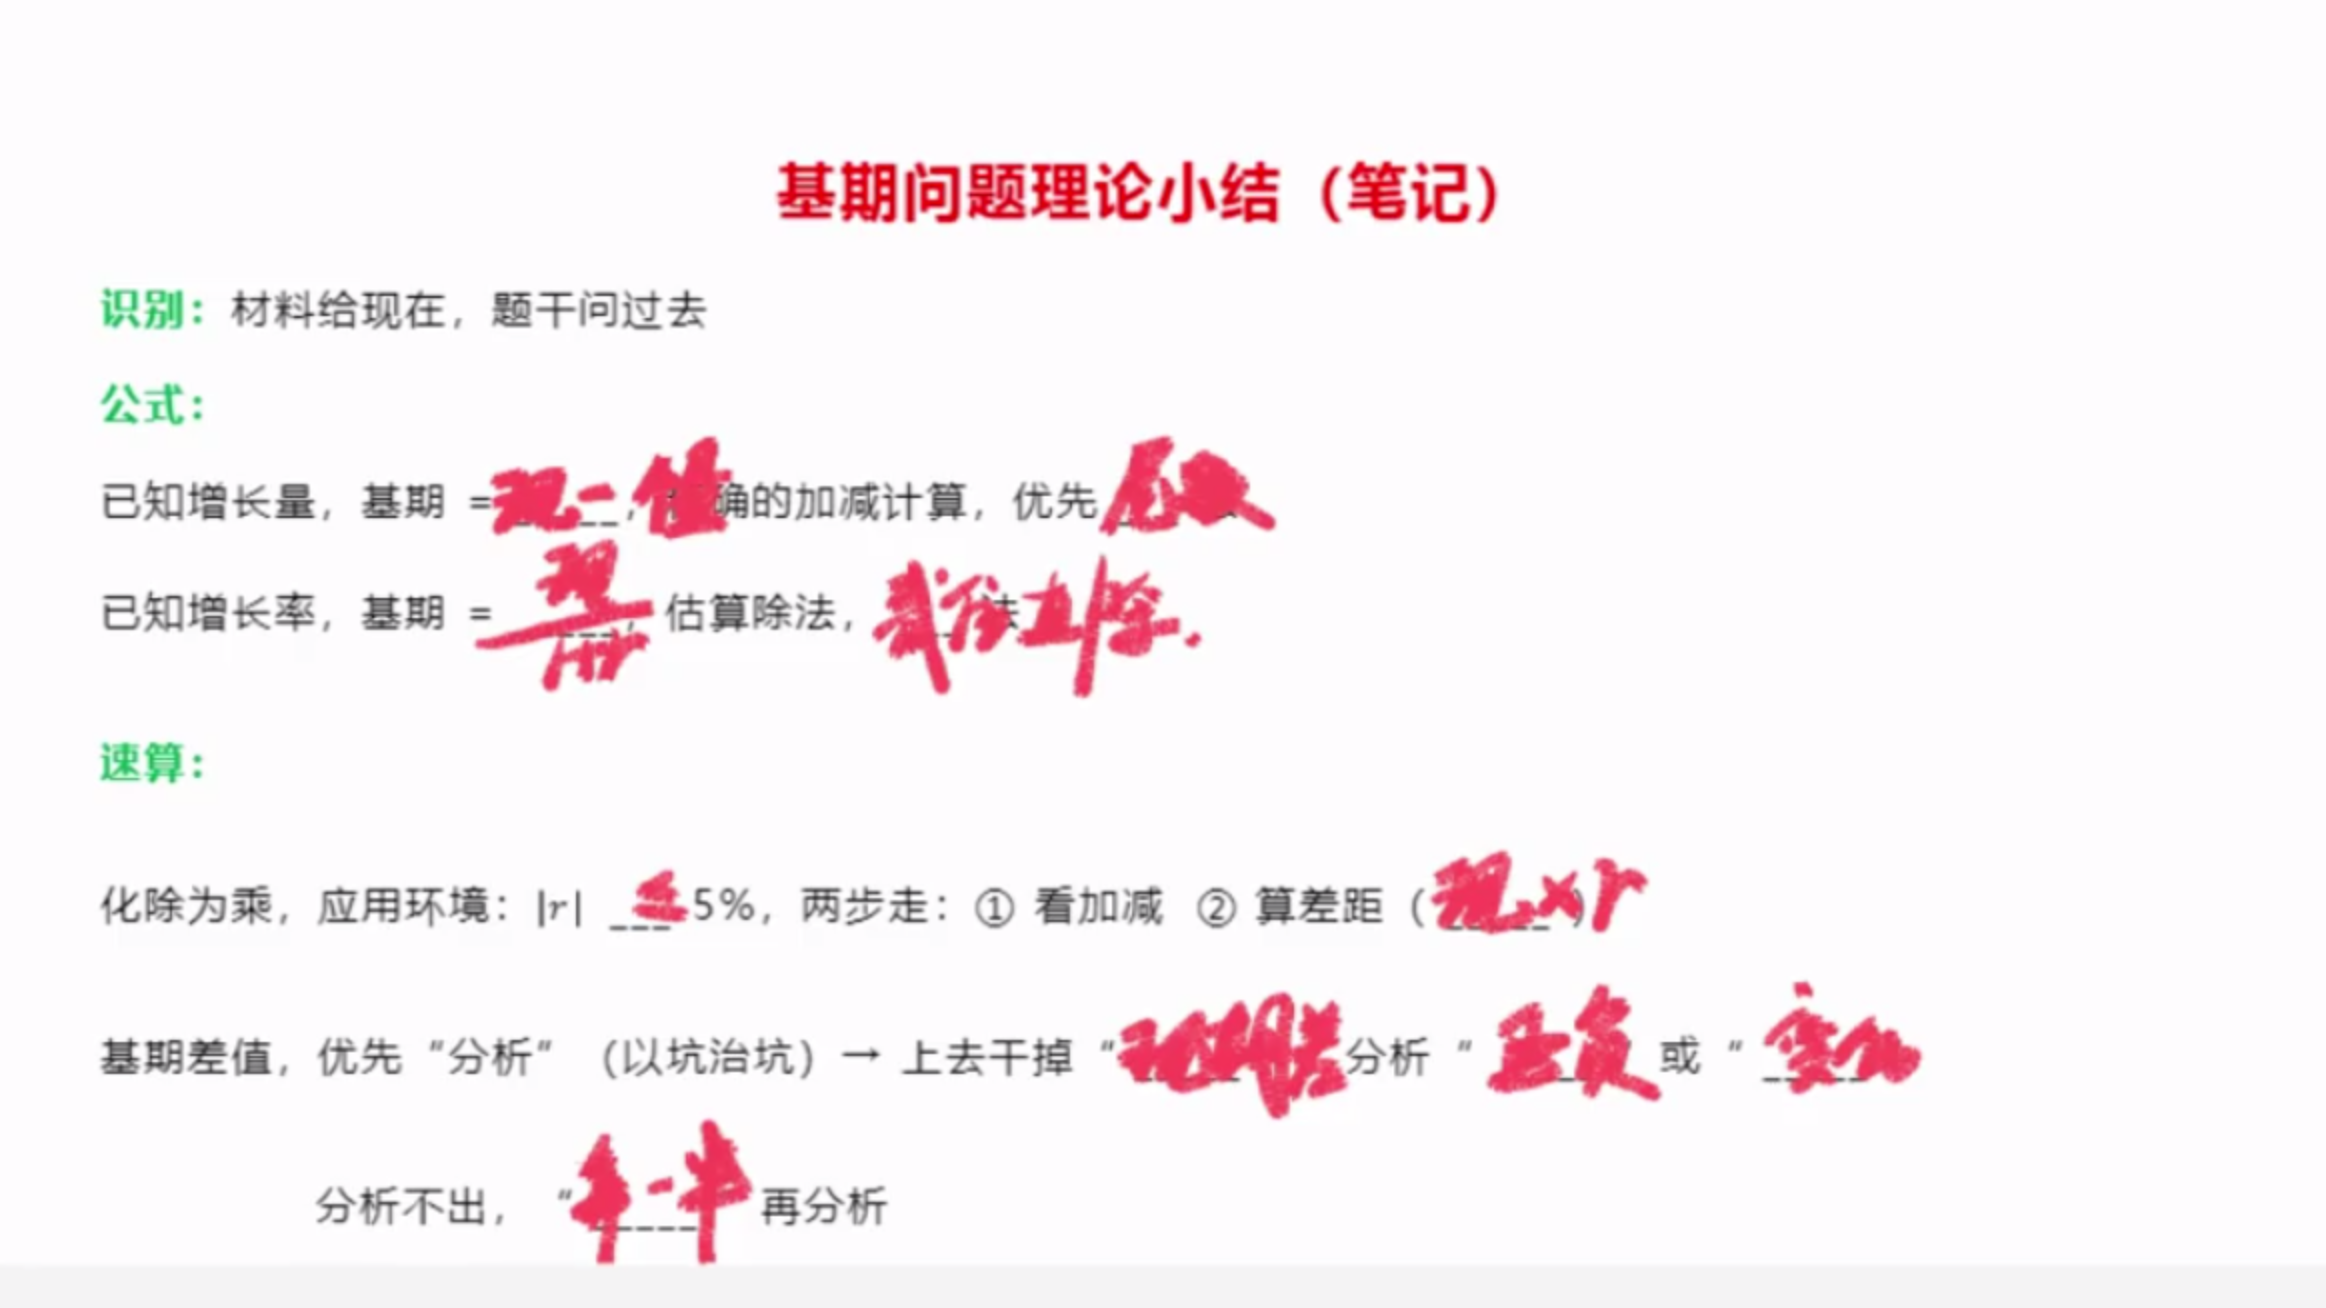 基期问题理论小结（笔记）
识别：材料给现在，题干问过去
公式：
已知增长量，基期 = 现-值 确的加减计算，优先
已知增长率，基期 = 现 估算除法，
速算：
化除为乘，应用环境：|r| ≤ 5%，两步走：① 看加减 ② 算差距（现×r）
基期差值，优先“分析”（以坑治坑）→ 上去干掉“ 分析“正负 或“变化
分析不出，“ 再分析